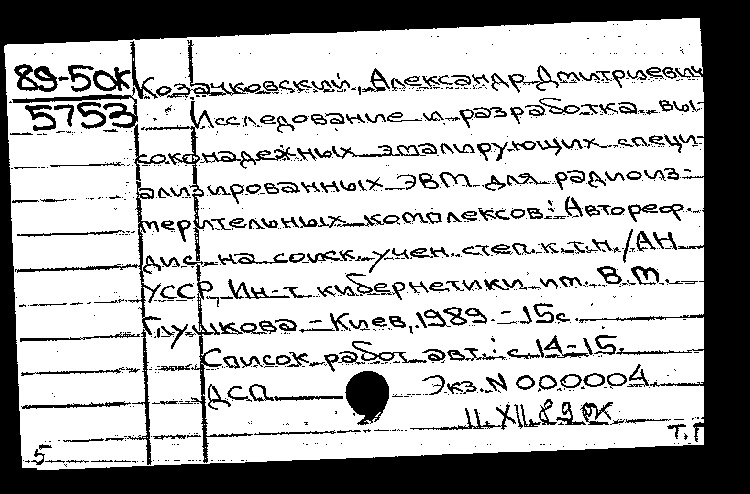 89-50К Козачковский, Александр Дмитриевич
5753 Исследование и разработка вы-
соконадежных эмалирующих специ-
ализированных ЭВМ для радиоиз-
мерительных комплексов: Автореф.
дис. на соиск. учен. степ. к.т.н. / АН
УССР, Ин-т кибернетики им. В.М.
Глушкова. - Киев, 1989. - 15с.
Список работ авт.: с.14-15.
ДСП Экз. N 000004.
11.XII.89 ОК
Т.Г
5